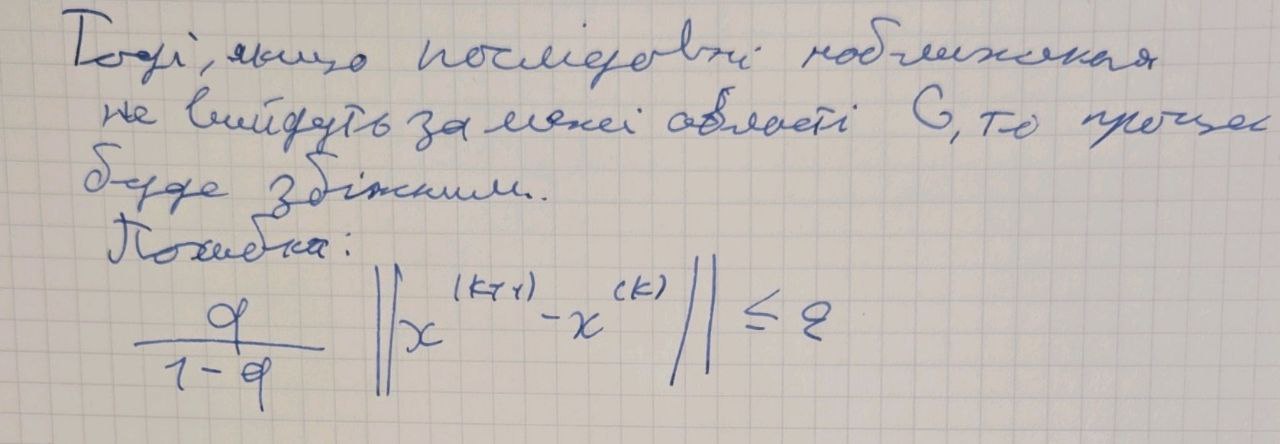 Тоді, якщо послідовні наближення
не вийдуть за межі області G, то процес
буде збіжним.
Похибка:
q/(1-q) ||x^(k+1) - x^(k)|| ≤ ε